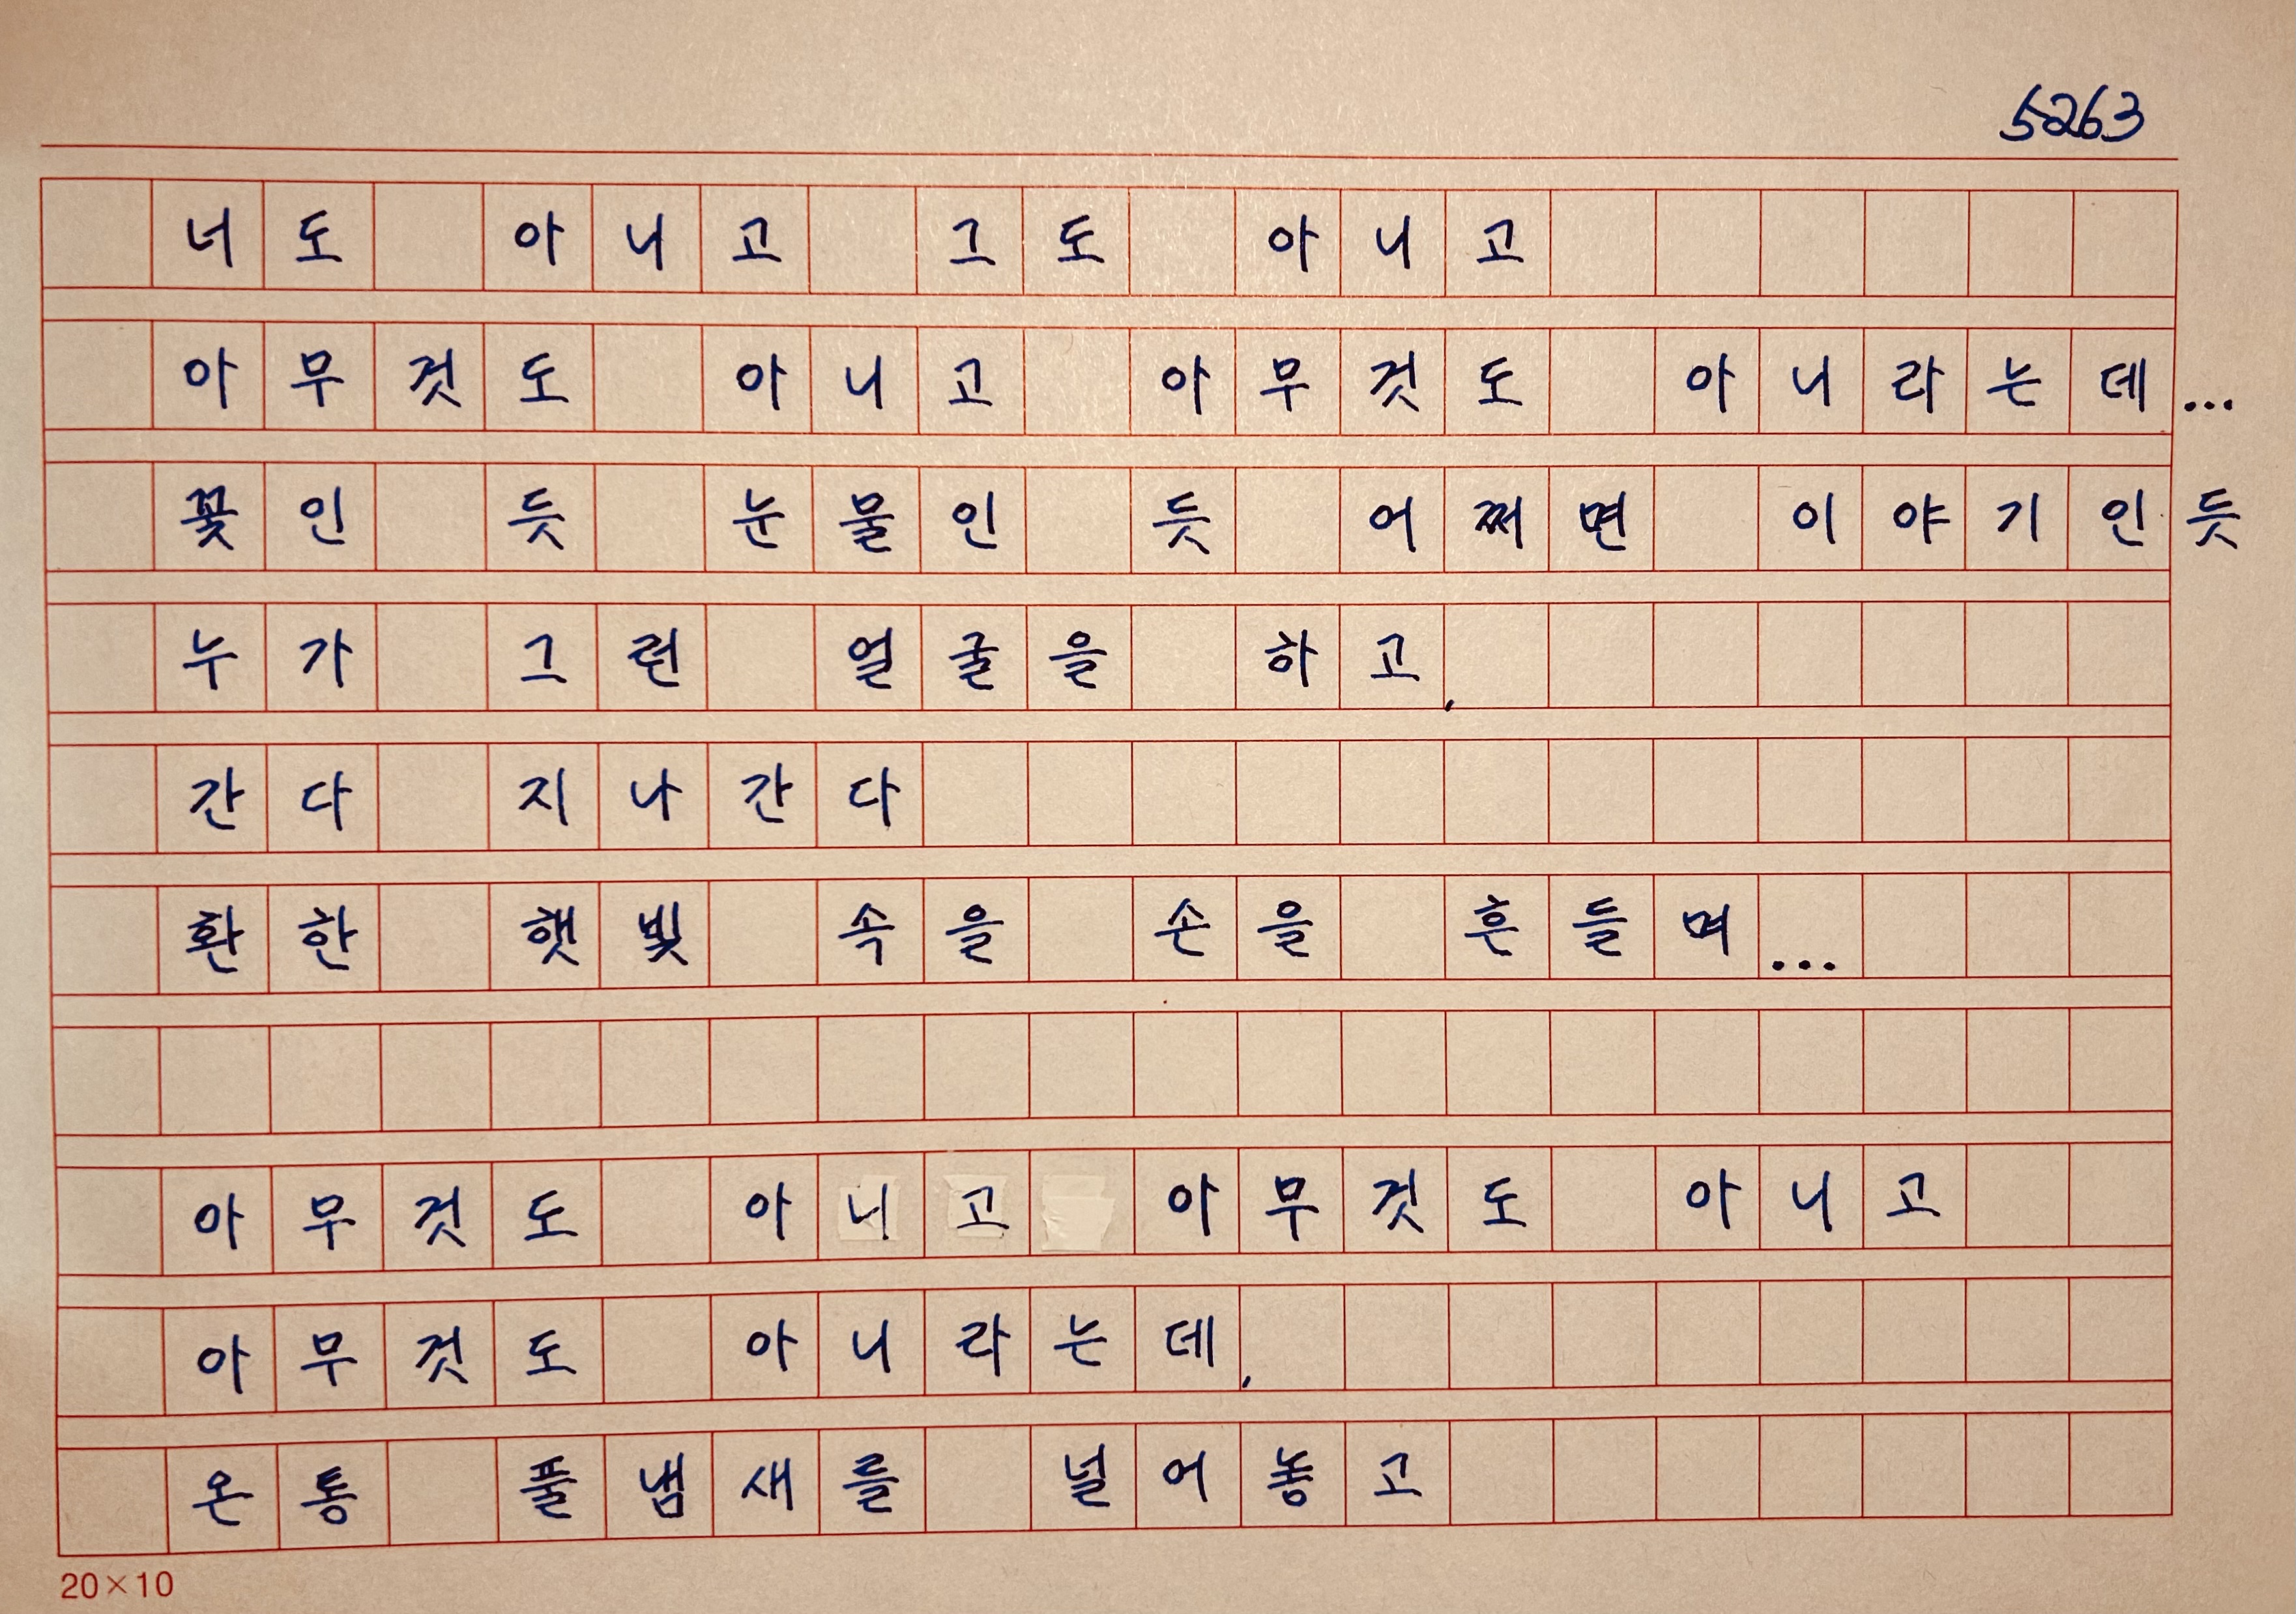 5263
너도 아니고 그도 아니고
아무것도 아니고 아무것도 아니라는데...
꽃인 듯 눈물인 듯 어쩌면 이야기인 듯
누가 그런 얼굴을 하고,
간다 지나간다
환한 햇빛 속을 손을 흔들며...
아무것도 아니고 아무것도 아니고
아무것도 아니라는데,
온통 풀냄새를 널어놓고
20×10